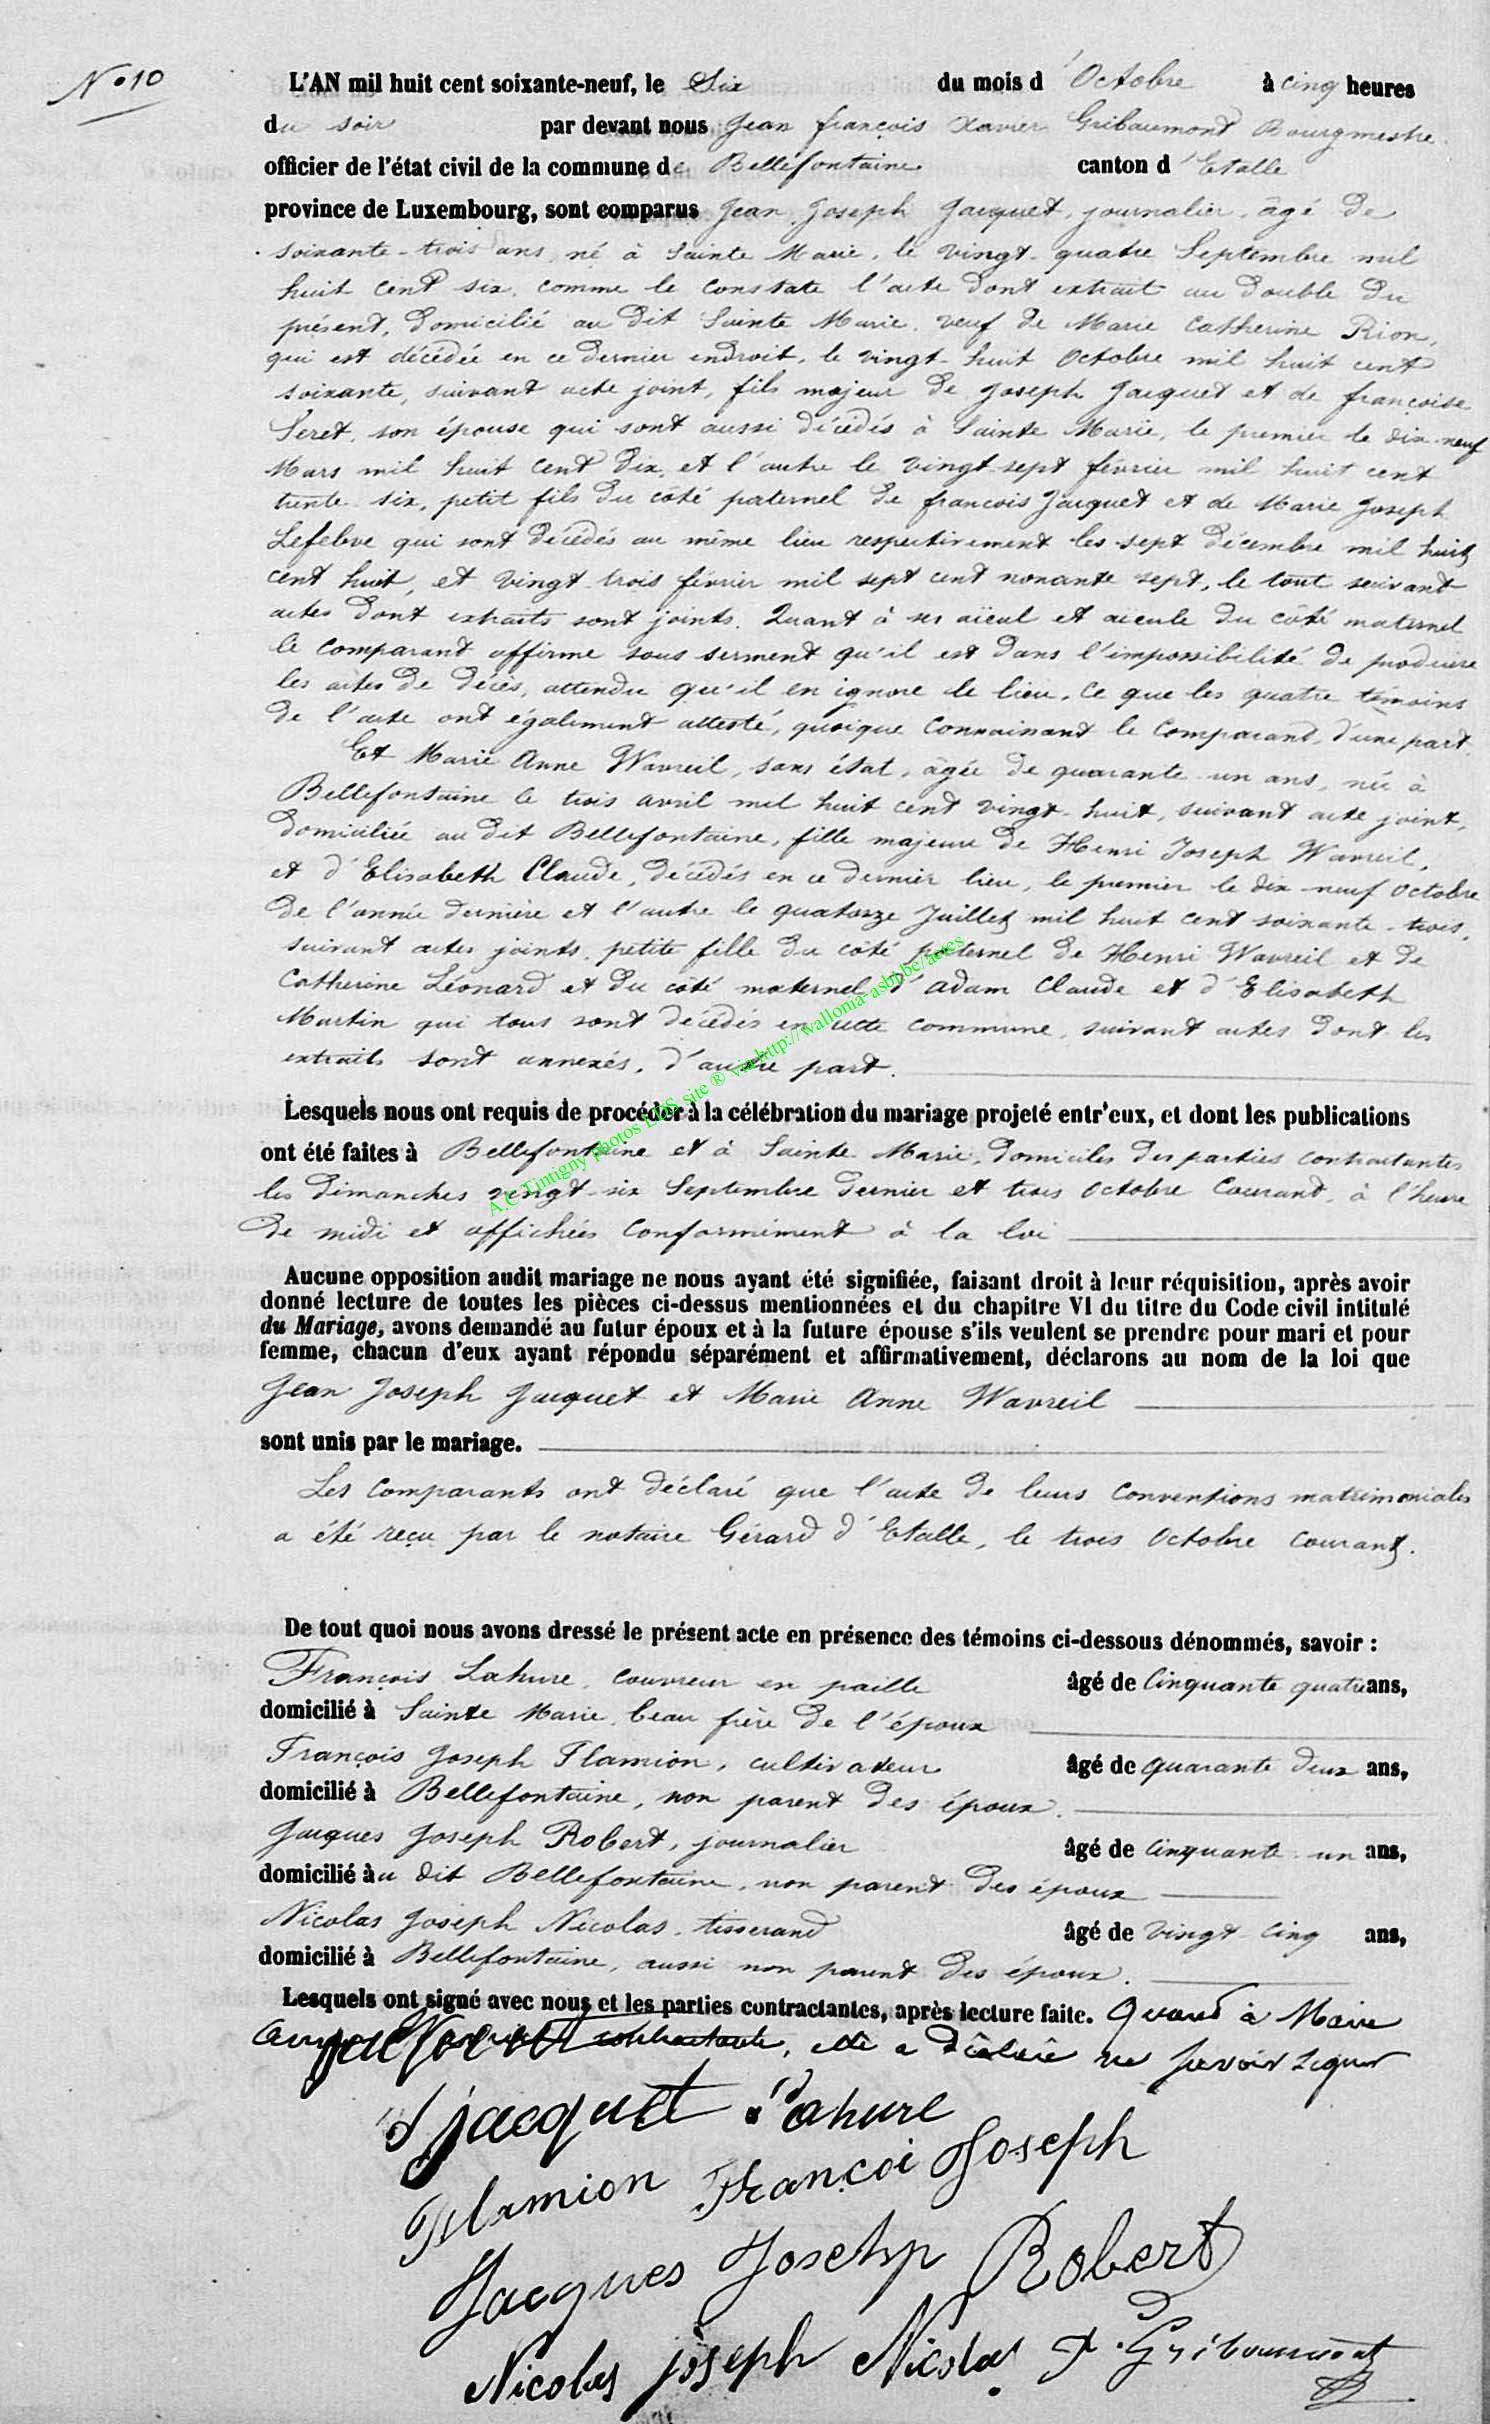 N° 10
L'AN mil huit cent soixante-neuf, le Six du mois d'Octobre à cinq heures
du soir par devant nous Jean françois Xavier Gribaumont Bourgmestre
officier de l'état civil de la commune de Bellefontaine canton d'Etalle
province de Luxembourg, sont comparus Jean Joseph Jacquet, journalier, âgé de
soixante-trois ans, né à Sainte Marie, le vingt-quatre Septembre mil
huit cent six, comme le constate l'acte dont extrait au double du
présent, domicilié au dit Sainte Marie, veuf de Marie Catherine Rion,
qui est décédée en ce dernier endroit, le vingt-huit Octobre mil huit cent
soixante, suivant acte joint, fils majeur de Joseph Jacquet et de françoise
Seret, son épouse qui sont aussi décédés à Sainte Marie, le premier le dix-neuf
Mars mil huit cent dix, et l'autre le vingt-sept février mil huit cent
trente-six, petit fils du côté paternel de francois Jacquet et de Marie Joseph
Lefebve qui sont décédés au même lieu respectivement les sept décembre mil huit
cent huit, et vingt-trois février mil sept cent nonante sept, le tout suivant
actes dont extraits sont joints. Quant à ses aïeul et aïeule du côté maternel
le comparant affirme sous serment qu'il est dans l'impossibilité de produire
les actes de décès, attendu qu'il en ignore le lieu, ce que les quatre témoins
de l'acte ont également attesté, quoique connaissant le comparant, d'une part
Et Marie Anne Wavreil, sans état, âgée de quarante-un ans, née à
Bellefontaine le trois avril mil huit cent vingt-huit, suivant acte joint,
domiciliée au dit Bellefontaine, fille majeure de Henri Joseph Wavreil,
et d'Elisabeth Claude, décédés en ce dernier lieu, le premier le dix-neuf octobre
de l'année dernière et l'autre le quatorze Juillet mil huit cent soixante-trois,
suivant actes joints, petite fille du côté paternel de Henri Wavreil et de
Catherine Léonard et du côté maternel d'adam Claude et d'Elisabeth
Martin qui tous sont décédés en cette commune, suivant actes dont les
extraits sont annexés, d'autre part.
Lesquels nous ont requis de procéder à la célébration du mariage projeté entr'eux, et dont les publications
ont été faites à Bellefontaine et à Sainte Marie, domiciles des parties contractantes
les dimanches vingt-six Septembre dernier et trois Octobre Courant, à l'heure
de midi et affichées conformément à la loi
Aucune opposition audit mariage ne nous ayant été signifiée, faisant droit à leur réquisition, après avoir
donné lecture de toutes les pièces ci-dessus mentionnées et du chapitre VI du titre du Code civil intitulé
du Mariage, avons demandé au futur époux et à la future épouse s'ils veulent se prendre pour mari et pour
femme, chacun d'eux ayant répondu séparément et affirmativement, déclarons au nom de la loi que
Jean Joseph Jacquet et Marie Anne Wavreil
sont unis par le mariage.
Les comparants ont déclaré que l'acte de leurs conventions matrimoniales
a été reçu par le notaire Gérard d'Etalle, le trois Octobre courant.
De tout quoi nous avons dressé le présent acte en présence des témoins ci-dessous dénommés, savoir :
François Lahure, couvreur en paille âgé de Cinquante quatre ans,
domicilié à Sainte Marie, beau frère de l'époux
François Joseph Flamion, cultivateur âgé de quarante deux ans,
domicilié à Bellefontaine, non parent des époux.
Jacques Joseph Robert, journalier âgé de Cinquante-un ans,
domicilié au dit Bellefontaine, non parent des époux
Nicolas Joseph Nicolas, tisserand âgé de vingt-cinq ans,
domicilié à Bellefontaine, aussi non parent des époux.
Lesquels ont signé avec nous et les parties contractantes, après lecture faite. Quand à Marie
contractante, elle a déclaré ne savoir signer
jjacquet Lahure
Flamion Françoi Joseph
Jacques Josehp Robert
Nicolas joseph Nicolas F. Gribaumont
A.C Tintigny photos LDS site ® via http://wallonia-asbl.be/actes